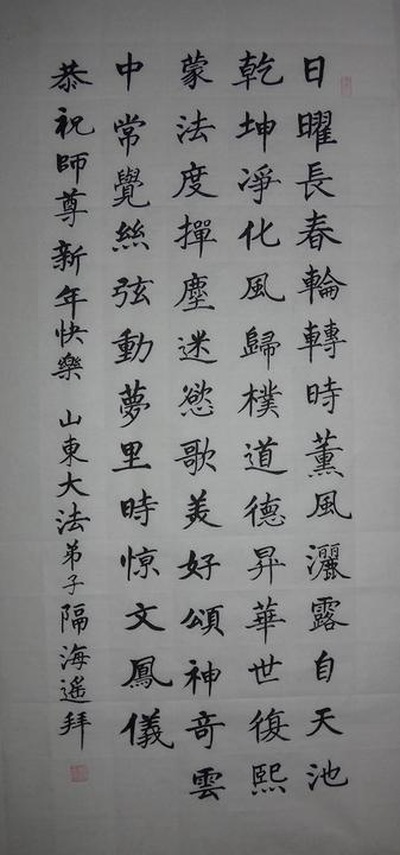 日曜長春輪轉時薰風灑露自天池
乾坤淨化風歸樸道德昇華世復熙
蒙法度撣塵迷慾歌美好頌神奇雲
中常覺絲弦動夢里時惊文鳳儀
恭祝師尊新年快樂 山東大法弟子隔海遥拜